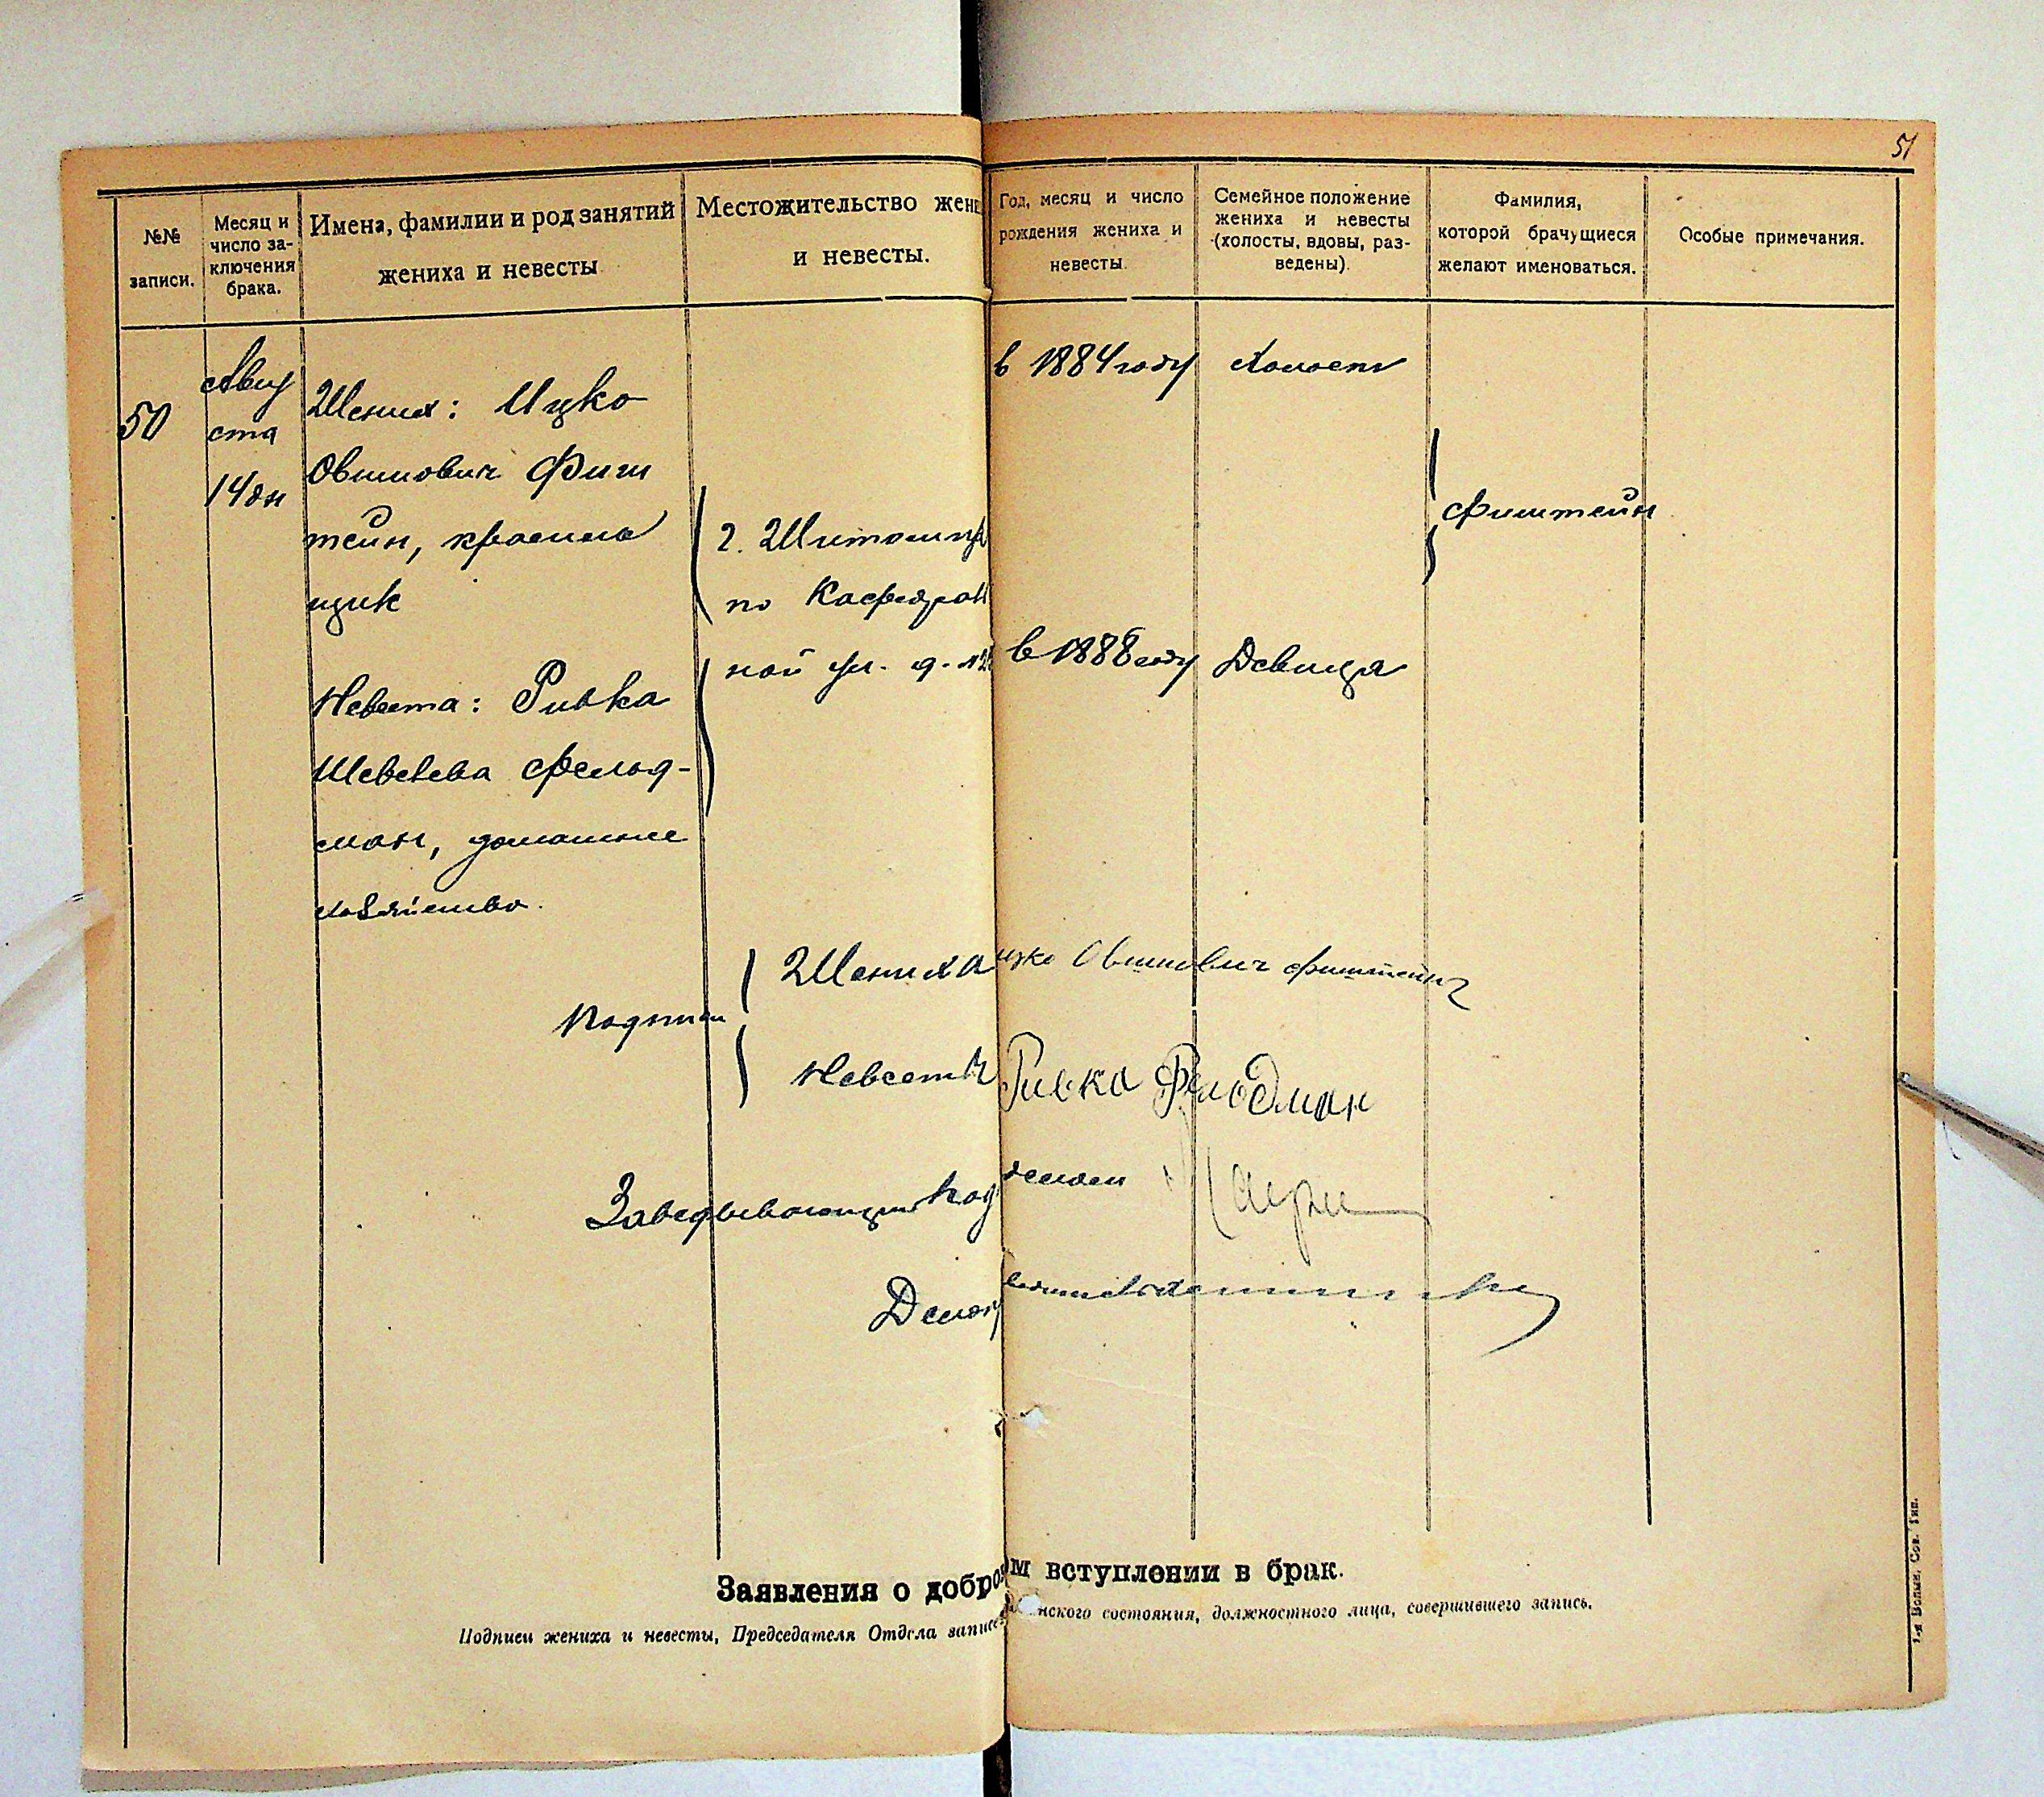 51
№№ записи.
Месяц и число за-
ключения брака.
Имена, фамилии и род занятий
жениха и невесты
Местожительство жене
и невесты.
Год, месяц и число
рождения жениха и
невесты.
Семейное положение
жениха и невесты
(холосты, вдовы, раз-
ведены).
Фамилия,
которой брачущиеся
желают именоваться.
Особые примечания.
50
Авгу
ста
14 дн
Жених: Ицко
Овшиович Фиш
тейн, красиль
щик
Невеста: Ривка
Шевелева Фельд-
ман, домашнее
хозяйство.
г. Житомир
по Кафедраль
ной ул. д. №
в 1884 году
Холост
в 1888 году
Девица
Фиштейн
Подписи
Жениха Ицко Овшиович Фиштейн
Невесты Ривка Фельдман
Заведывающий Под
Делоп
Заявления о добро м вступлении в брак.
Подписи жениха и невесты, Председателя Отдела записей нского состояния, должностного лица, совершившего запись.
1-я Волын. Сов. Тип.